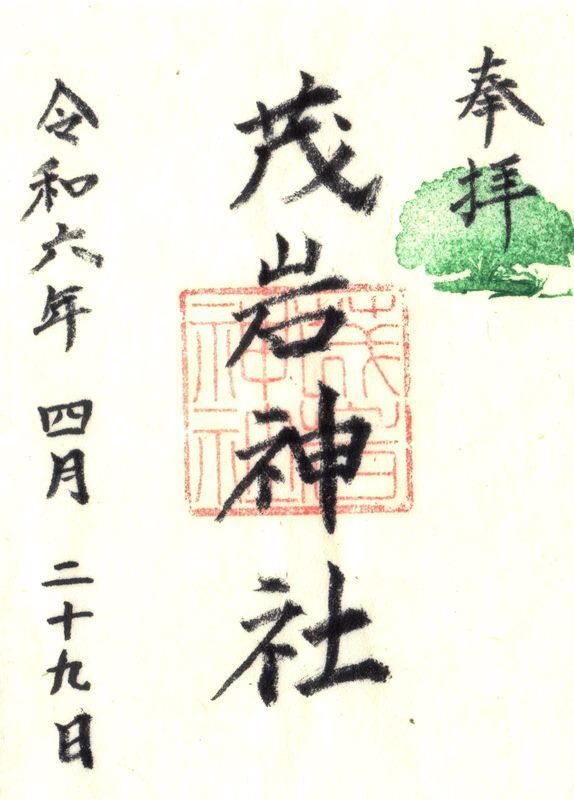 奉拝
茂岩神社
令和六年 四月 二十九日
茂岩
神社